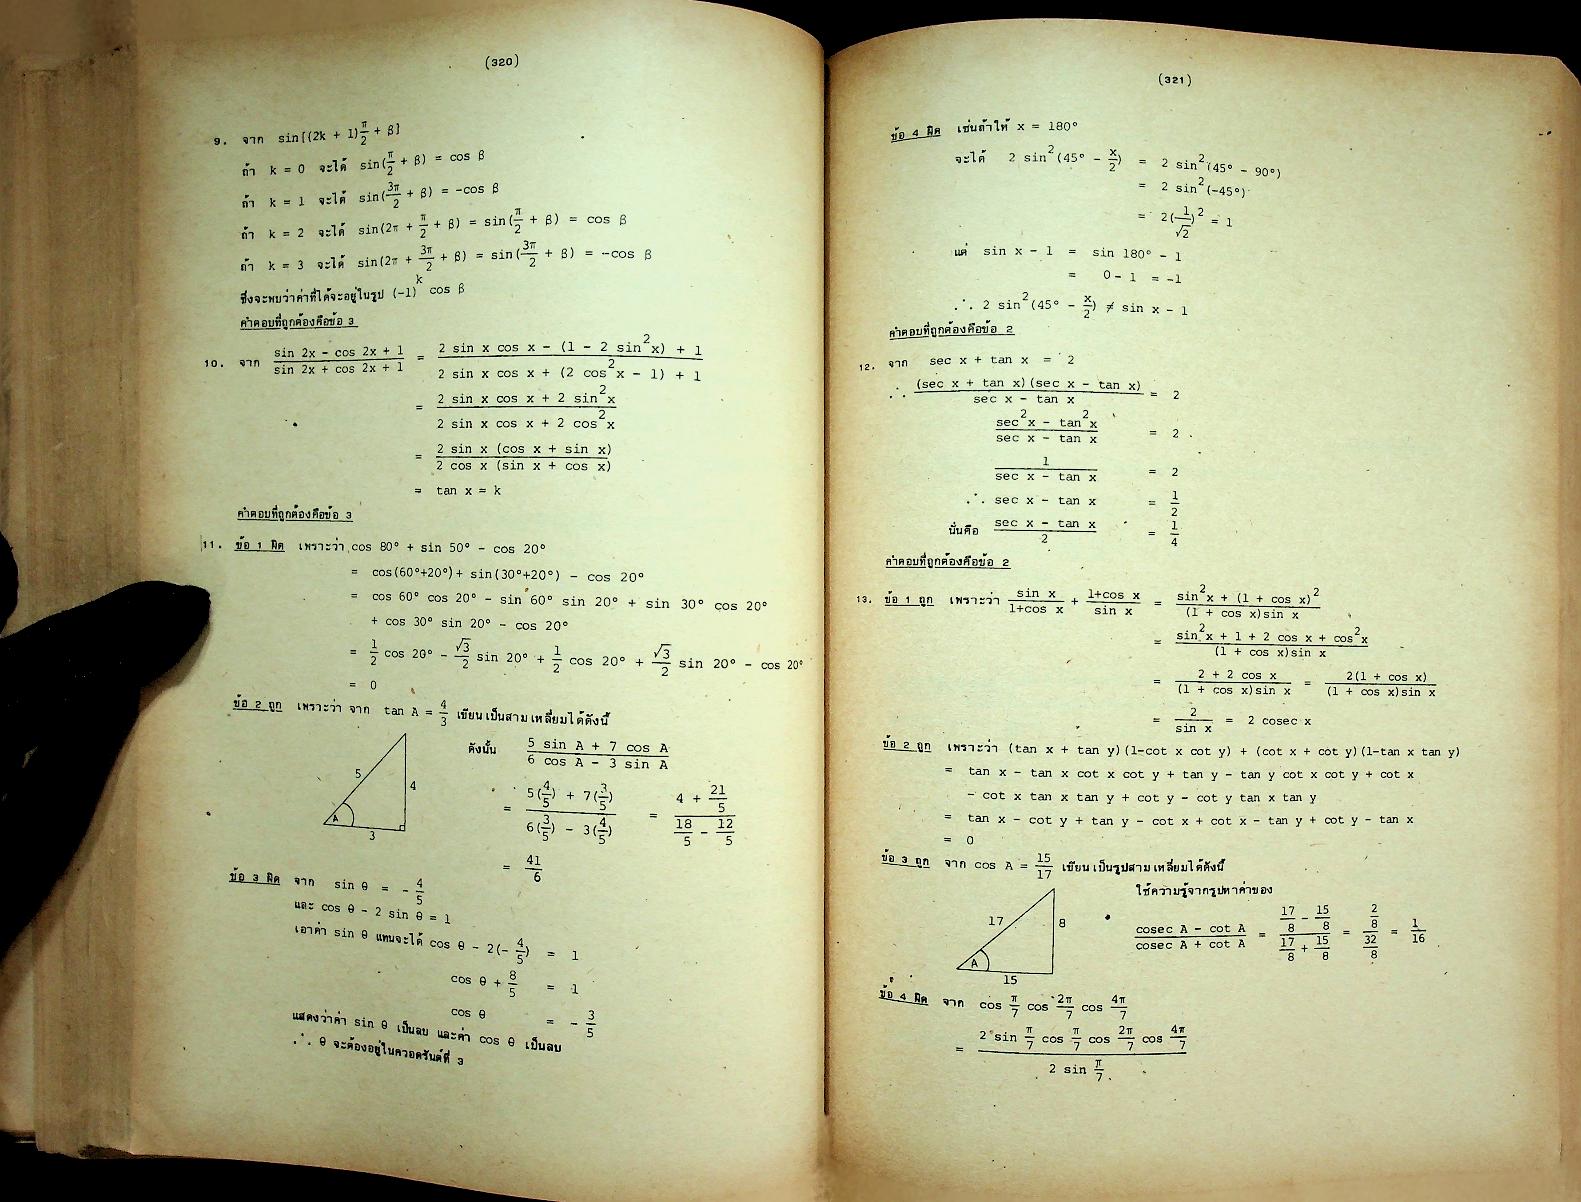 (320)
9. จาก sin[(2k + 1)π/2 + β]
ถ้า k = 0 จะได้ sin(π/2 + β) = cos β
ถ้า k = 1 จะได้ sin(3π/2 + β) = -cos β
ถ้า k = 2 จะได้ sin(2π + π/2 + β) = sin(π/2 + β) = cos β
ถ้า k = 3 จะได้ sin(2π + 3π/2 + β) = sin(3π/2 + β) = -cos β
ซึ่งจะพบว่าค่าที่ได้จะอยู่ในรูป (-1)^k cos β
คำตอบที่ถูกต้องคือข้อ 3
10. จาก (sin 2x - cos 2x + 1)/(sin 2x + cos 2x + 1) = (2 sin x cos x - (1 - 2 sin²x) + 1)/(2 sin x cos x + (2 cos²x - 1) + 1)
= (2 sin x cos x + 2 sin²x)/(2 sin x cos x + 2 cos²x)
= (2 sin x (cos x + sin x))/(2 cos x (sin x + cos x))
= tan x = k
คำตอบที่ถูกต้องคือข้อ 3
11. ข้อ 1 ผิด เพราะว่า cos 80° + sin 50° - cos 20°
= cos(60°+20°)+ sin(30°+20°) - cos 20°
= cos 60° cos 20° - sin 60° sin 20° + sin 30° cos 20°
+ cos 30° sin 20° - cos 20°
= 1/2 cos 20° - √3/2 sin 20° + 1/2 cos 20° + √3/2 sin 20° - cos 20°
= 0
ข้อ 2 ถูก เพราะว่า จาก tan A = 4/3 เขียนเป็นสามเหลี่ยมได้ดังนี้
5
4
A
3
ดังนั้น (5 sin A + 7 cos A)/(6 cos A - 3 sin A)
= (5(4/5) + 7(3/5))/(6(3/5) - 3(4/5)) = (4 + 21/5)/(18/5 - 12/5)
= 41/6
ข้อ 3 ผิด จาก sin θ = -4/5
และ cos θ - 2 sin θ = 1
เอาค่า sin θ แทนจะได้ cos θ - 2(-4/5) = 1
cos θ + 8/5 = 1
cos θ = -3/5
แสดงว่าค่า sin θ เป็นลบ และค่า cos θ เป็นลบ
∴ θ จะต้องอยู่ในควอดรันต์ที่ 3
(321)
ข้อ 4 ผิด เช่นถ้าให้ x = 180°
จะได้ 2 sin²(45° - x/2) = 2 sin²(45° - 90°)
= 2 sin²(-45°)
= 2(1/√2)² = 1
แต่ sin x - 1 = sin 180° - 1
= 0 - 1 = -1
∴ 2 sin²(45° - x/2) ≠ sin x - 1
คำตอบที่ถูกต้องคือข้อ 2
12. จาก sec x + tan x = 2
∴ ((sec x + tan x)(sec x - tan x))/(sec x - tan x) = 2
(sec²x - tan²x)/(sec x - tan x) = 2
1/(sec x - tan x) = 2
∴ sec x - tan x = 1/2
นั่นคือ (sec x - tan x)/2 = 1/4
คำตอบที่ถูกต้องคือข้อ 2
13. ข้อ 1 ถูก เพราะว่า sin x/(1+cos x) + (1+cos x)/sin x = (sin²x + (1 + cos x)²)/((1 + cos x)sin x)
= (sin²x + 1 + 2 cos x + cos²x)/((1 + cos x)sin x)
= (2 + 2 cos x)/((1 + cos x)sin x) = (2(1 + cos x))/((1 + cos x)sin x)
= 2/sin x = 2 cosec x
ข้อ 2 ถูก เพราะว่า (tan x + tan y)(1-cot x cot y) + (cot x + cot y)(1-tan x tan y)
= tan x - tan x cot x cot y + tan y - tan y cot x cot y + cot x
- cot x tan x tan y + cot y - cot y tan x tan y
= tan x - cot y + tan y - cot x + cot x - tan y + cot y - tan x
= 0
ข้อ 3 ถูก จาก cos A = 15/17 เขียนเป็นรูปสามเหลี่ยมได้ดังนี้
17
8
A
15
ใช้ความรู้จากรูปหาค่าของ
(cosec A - cot A)/(cosec A + cot A) = (17/8 - 15/8)/(17/8 + 15/8) = (2/8)/(32/8) = 1/16
ข้อ 4 ผิด จาก cos π/7 cos 2π/7 cos 4π/7
= (2 sin π/7 cos π/7 cos 2π/7 cos 4π/7)/(2 sin π/7)